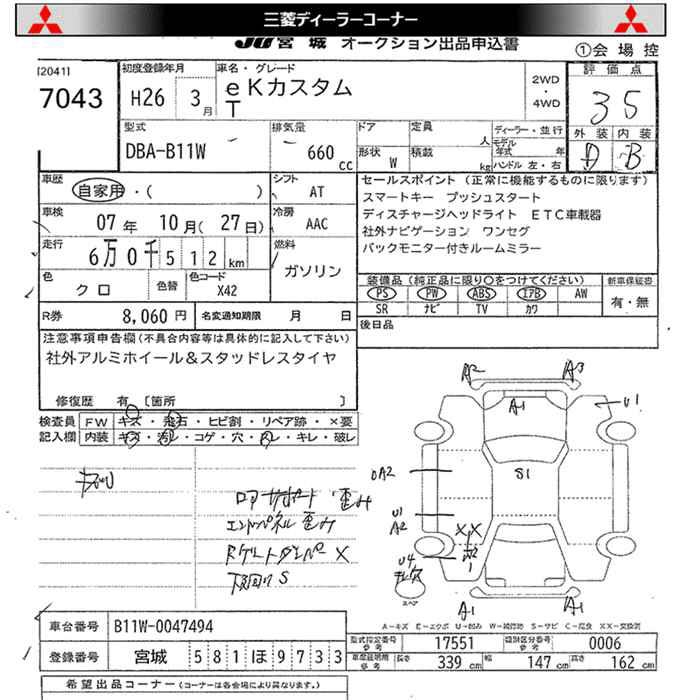 三菱ディーラーコーナー
JU宮城 オークション出品申込書
①会場控
[2041]
7043
初度登録年月
H26 3月
車名・グレード
eKカスタム
T
2WD
・
4WD
評価点
3.5
外装 内装
D B
型式
DBA-B11W
排気量
660 cc
ドア
形状 W
定員 人
積載 kg
ディーラー・並行
モデル年式 年
ハンドル 左・右
車歴
自家用・( )
シフト
AT
車検
07年 10月(27日)
冷房
AAC
走行
6万0千512km
燃料
ガソリン
色
クロ
色替
色コード
X42
R券 8,060円
名変通知期限 月 日
セールスポイント (正常に機能するものに限ります)
スマートキー プッシュスタート
ディスチャージヘッドライト ETC車載器
社外ナビゲーション ワンセグ
バックモニター付きルームミラー
装備品(純正品に限り○をつけてください)
PS PW ABS エアB AW
SR ナビ TV カワ
新車保証書
有・無
後日品
注意事項申告欄(不具合内容等は具体的に記入して下さい)
社外アルミホイール&スタッドレスタイヤ
修復歴 有 [箇所 ]
検査員記入欄
FW キズ・飛石・ヒビ割・リペア跡・×要
内装 キズ・汚レ・コゲ・穴・スレ・キレ・破レ
ロアサポート 歪み
エンドパネル 歪み
バケットダンパ X
下回りS
A2 A3
A1
U1
S1
UA2
U1
A2
XX
U4
スペア
A1 A1
A-キズ E-エクボ U-凹み W-補修跡 S-サビ C-腐食 XX-交換済
車台番号 B11W-0047494
登録番号 宮城 581ほ9733
型式指定番号 参考 17551
類別区分番号 参考 0006
車庫証明用 参考
長さ 339cm 幅 147cm 高さ 162cm
希望出品コーナー(コーナーは各会場により異なります。)